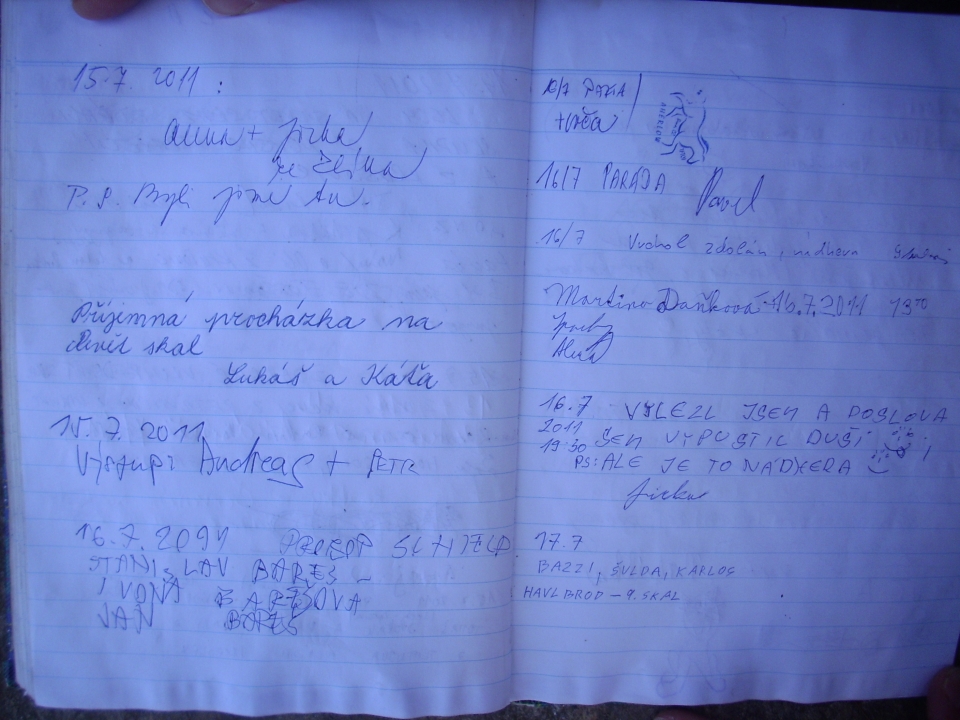 15.7. 2011 :
Anna + Jirka
ze Žďáru
P.S. Byli jsme tu.
Příjemná procházka na
Devět skal
Lukáš a Káťa
15.7. 2011
Výstup: Andreas + PETR
16.7. 2011
STANISLAV BAREŠ
IVONA BAREŠOVA
JAN BAREŠ
16/7 PARÁDA Pavel
16/7 Vrchol zdolán, nádhera
Martina Daňková 16.7.2011
16.7 VYLEZL JSEM A DOSLOVA
2011 SEM VYPUSTIL DUŠI
19:30
PS: ALE JE TO NÁDHERA
Jirka
17.7
BAZZI, ŠULDA, KARLOS
HAVL BROD - 9. SKAL